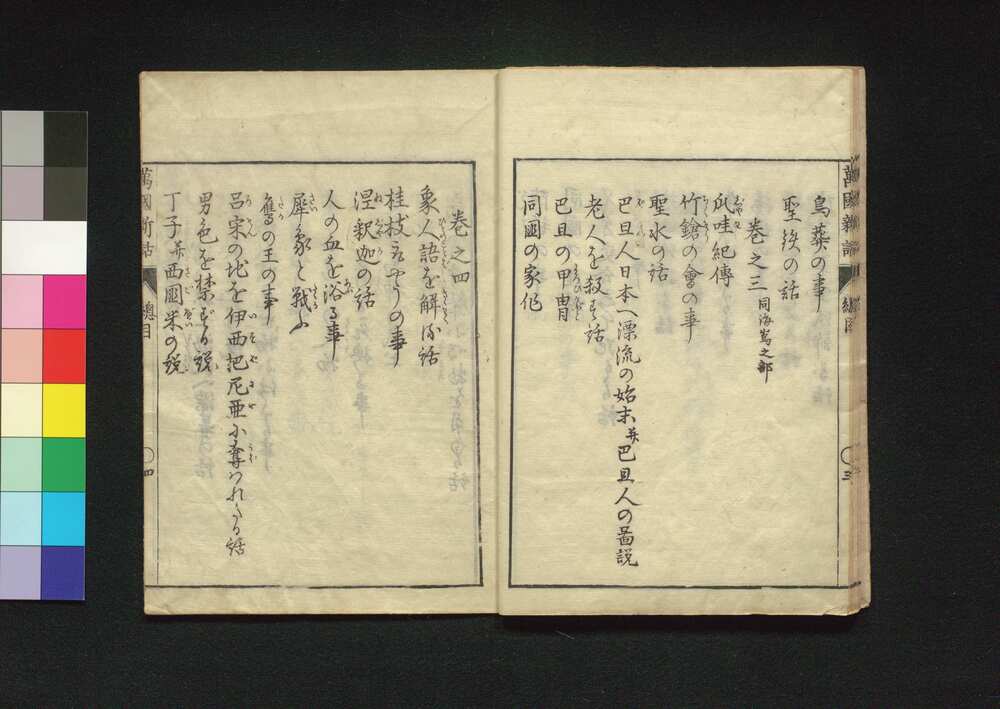 鳥葬の事
聖鉄の話
巻之三 同海嶌之部
瓜哇紀傳
竹鎗の會の事
聖水の話
巴旦人日本へ漂流の始末并巴旦人の啚説
老人を殺す話
巴旦の甲冑
同國の家作
萬國新話 總目 三
巻之四
象人語を解する話
桂枝になりの事
涅釈迦の話
人の血を浴る事
犀象と戦ふ
鴈の王の事
呂宋の地を伊西把尼亜に奪はれたる話
男色を禁ずる説
丁子并西國米の説
萬國新話 總目 四